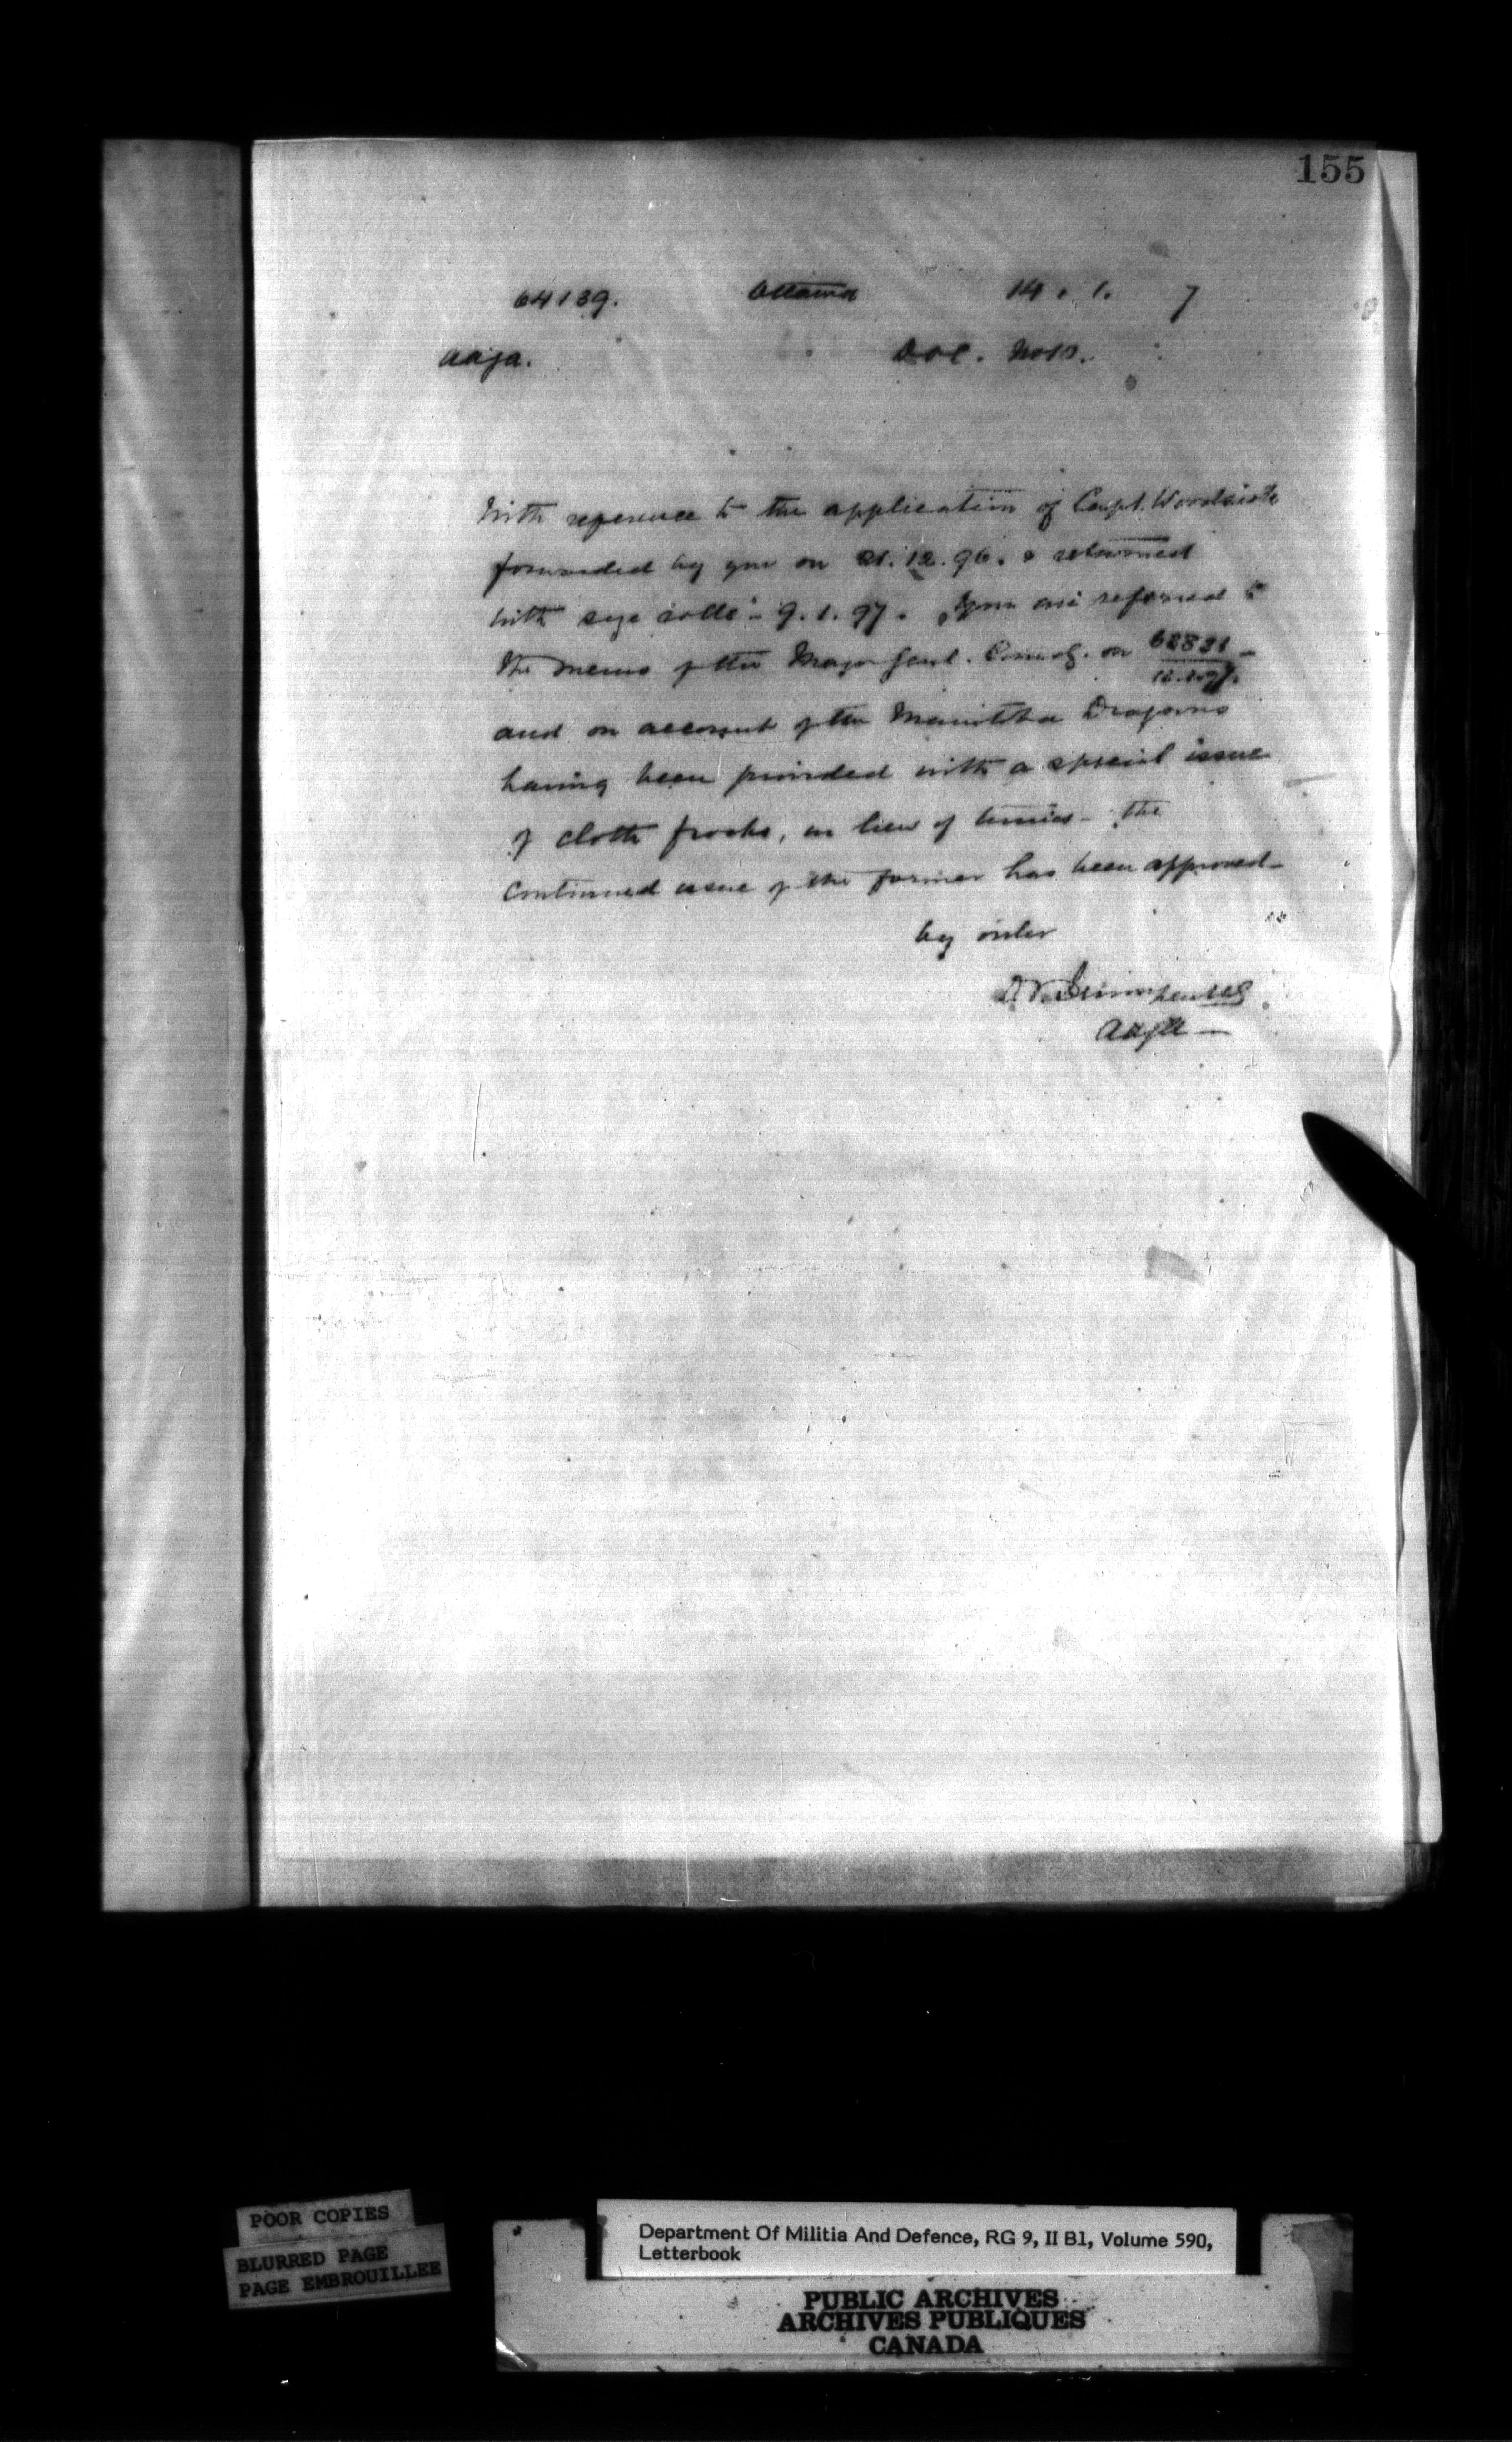 155
64139. Ottawa 14.1. 7
AAGA. DOC. No 10.
With reference to the application of Capt. Woodside
forwarded by you on 21.12.96. & returned
with size rolls - 9.1.97. you are referred to
the memo of the Major Genl. Comdg. on 62831 -
12.1.97.
and on account of the Manitoba Dragoons
having been provided with a special issue
of cloth frocks, in lieu of tunics - the
continued issue of the former has been approved -
by order
AAGA -
POOR COPIES
BLURRED PAGE
PAGE EMBROUILLEE
Department Of Militia And Defence, RG 9, II B1, Volume 590,
Letterbook
PUBLIC ARCHIVES
ARCHIVES PUBLIQUES
CANADA